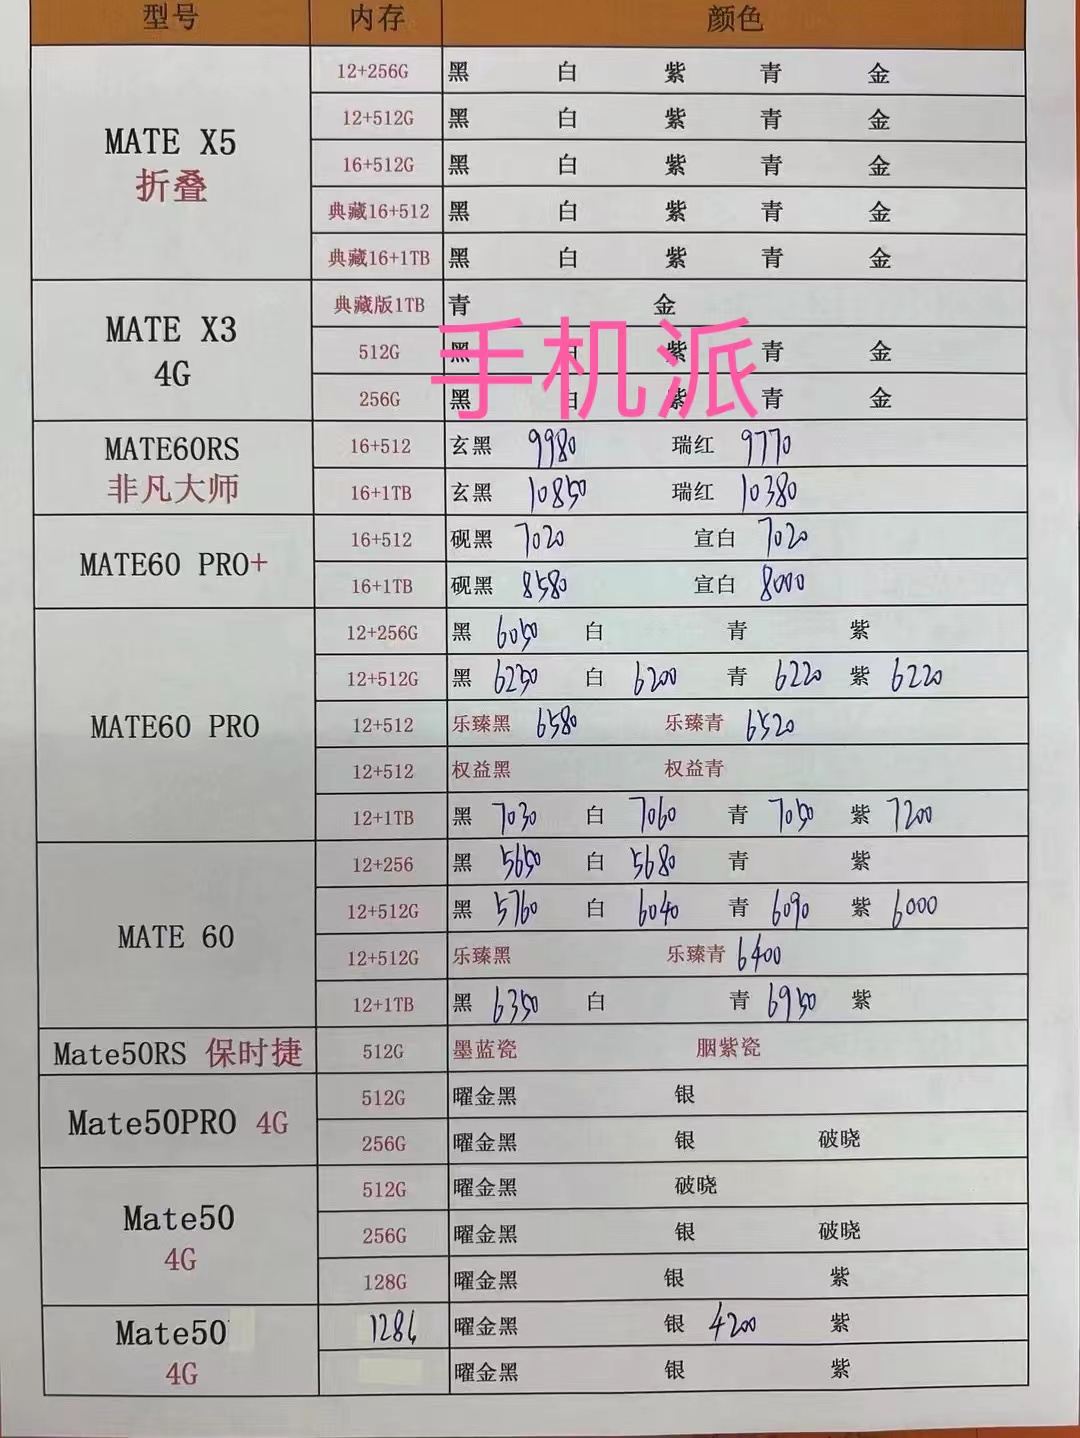 型号 内存 颜色
MATE X5 折叠
12+256G 黑 白 紫 青 金
12+512G 黑 白 紫 青 金
16+512G 黑 白 紫 青 金
典藏16+512 黑 白 紫 青 金
典藏16+1TB 黑 白 紫 青 金
MATE X3 4G
典藏版1TB 青 金
512G 黑 白 紫 青 金
256G 黑 白 紫 青 金
手机派
MATE60RS 非凡大师
16+512 玄黑 9980 瑞红 9770
16+1TB 玄黑 10850 瑞红 10380
MATE60 PRO+
16+512 砚黑 7020 宣白 7020
16+1TB 砚黑 8580 宣白 8000
MATE60 PRO
12+256G 黑 6050 白 青 紫
12+512G 黑 6250 白 6200 青 6220 紫 6220
12+512 乐臻黑 6580 乐臻青 6520
12+512 权益黑 权益青
12+1TB 黑 7030 白 7060 青 7050 紫 7200
MATE 60
12+256 黑 5650 白 5680 青 紫
12+512G 黑 5760 白 6040 青 6090 紫 6000
12+512G 乐臻黑 乐臻青 6400
12+1TB 黑 6350 白 青 6950 紫
Mate50RS 保时捷
512G 墨蓝瓷 胭紫瓷
Mate50PRO 4G
512G 曜金黑 银
256G 曜金黑 银 破晓
Mate50 4G
512G 曜金黑 破晓
256G 曜金黑 银 破晓
128G 曜金黑 银 紫
Mate50 4G
128G 曜金黑 银 4200 紫
曜金黑 银 紫